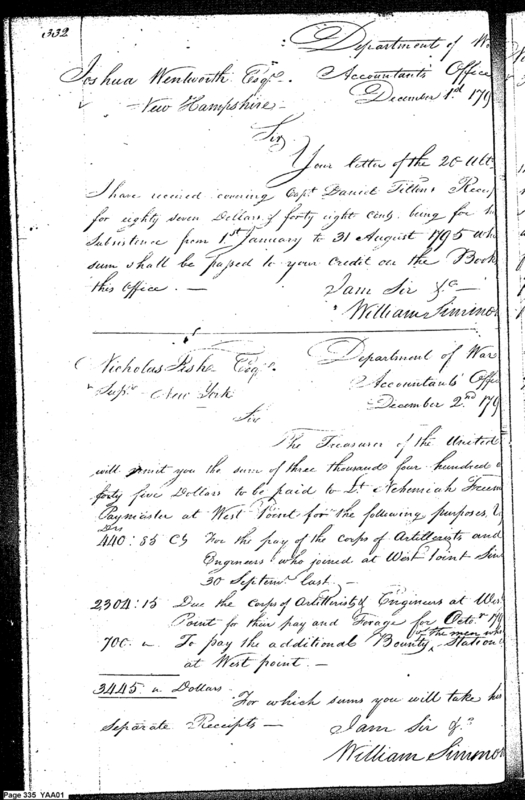 332
Department of Wa
Joshua Wentworth Esqr. Accountants Office
New Hampshire — December 1st 179
Sir
Your letter of the 20 Ulto
I have received covering Capt. Daniel Tiltons Recei
for eighty seven Dollars & forty eight Cents. being for h
Subsistence from 1st January to 31 August 1795 wh
sum shall be passed to your Credit on the Book
this Office. —
I am Sir &c
William Simmon
Nicholas Fish Esqr. Department of War
Supr. New York Accountants Offi
December 2nd 179
Sir
The Treasurer of the United
will remit you the sum of three thousand four hundred
forty five Dollars to be paid to Lt. Nehemiah Freem
Paymaster at West Point for the following purposes,
Drs
440:85 Cs For the pay of the Corps of Artillerists and
Engineers who joined at West Point Sin
30 Septemr. last —
2304:15 Due the Corps of Artillerists & Engineers at Wes
Point for their pay and Forage for Octor. 179
of the men who
700. " To pay the additional Bounty Station
at West point. —
3445 " Dollars.
For which sums you will take his
Separate Receipts —
I am Sir &c
William Simmon
Page 335 YAA01